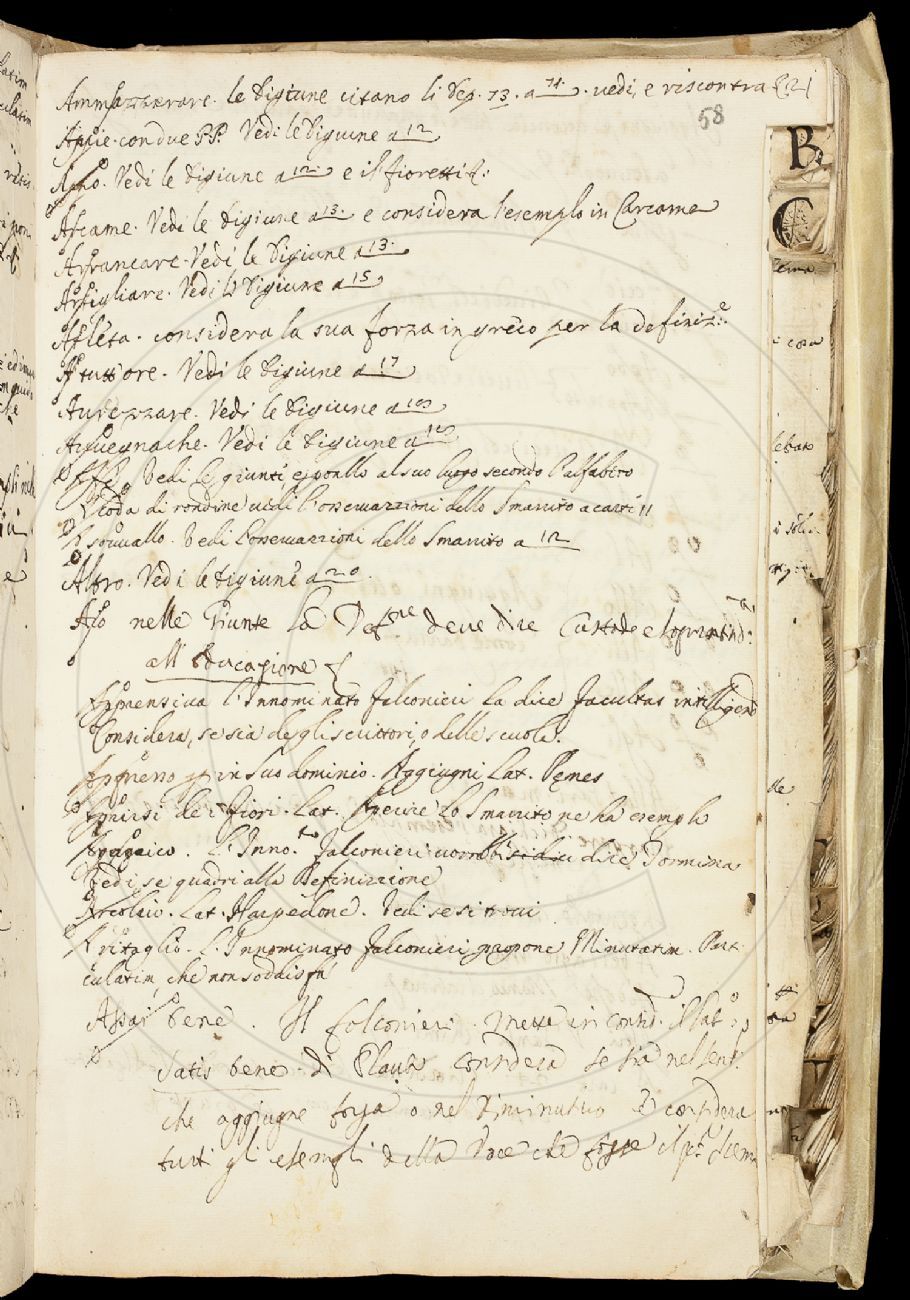 Ammazzerare. le Digiune citano li Dep. 73. a 74. vedi, e riscontra
58
Appie. con due PP. Vedi le Digiune a 12
Appo. Vedi le Digiune a 12. e il fioretti
Arcame. Vedi le Digiune a 13. e considera l'esemplo in Carcame
Arrancare. Vedi le Digiune a 13.
Artigliare. Vedi le Digiune a 15
Atleta. considera la sua forza in greco per la definiz.e
A tutt'ore. Vedi le Digiune a 17
Aurezzare. Vedi le Digiune a
Avvegnache. Vedi le Digiune a
Vedi le giunte, e porallo al suo luogo secondo l'alfabeto
A coda di rondine vedi l'osservazzioni dello Smarrito a carti 11
A sovvallo. Vedi l'osservazzioni dello Smarrito a 12
Altro. Vedi le Digiune a 20.
Ajo nelle Giunte la Def.ne deve dire Custode e
all' educazione
Apprensiva l'Innominato falconieri la dice facultas intelligendi
Considera, se sia degli scrittori, o delle scuole.
Appresso in suo dominio. Aggiugni Lat. Penes
Aprirsi de i fiori. Lat. Aperire Lo Smarrito ne ha esempli
L'Inno.to falconieri dice Tormina
Vedi, se quadri alla Definizzione
Arcolaio. Lat. Harpedone. Vedi se si trovi
A ritaglio. L'Innominato falconieri propone Minutatim. Parti
culatim, che non soddisfa
Assai bene. Il falconieri mette in consid.
Satis bene di Plauto considera se sia nel sens.
che aggiugne forza o nel diminutivo E considera
tutti gli esempli della Voce che
B
C